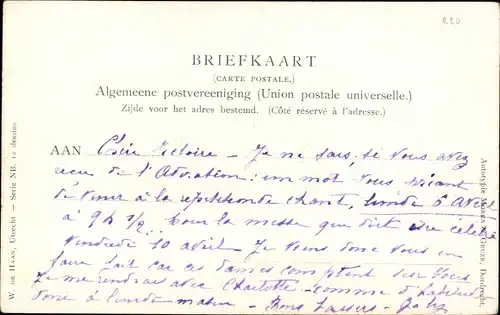 220
BRIEFKAART
(CARTE POSTALE.)
Algemeene postvereeniging (Union postale universelle.)
Zijde voor het adres bestemd. (Côté réservé à l'adresse.)
AAN Chère Victoire – Je ne sais, si vous avez
reçu de l'Adoration un mot vous
de venir à la répétition de chant, lundi 6 Avril
à 9h ½. Pour la messe que doit être célébré
Vendredi 10 avril. Je viens donc vous en
faire part car ces dames comptent sur vous
Je me rendrai avec Charlotte comme d'habitude
donc à lundi matin – Bons baisers –
W. DE HAAN, Utrecht – Serie NR. 12 dessins.
Autotypie MORKS & GEUZE, Dordrecht.